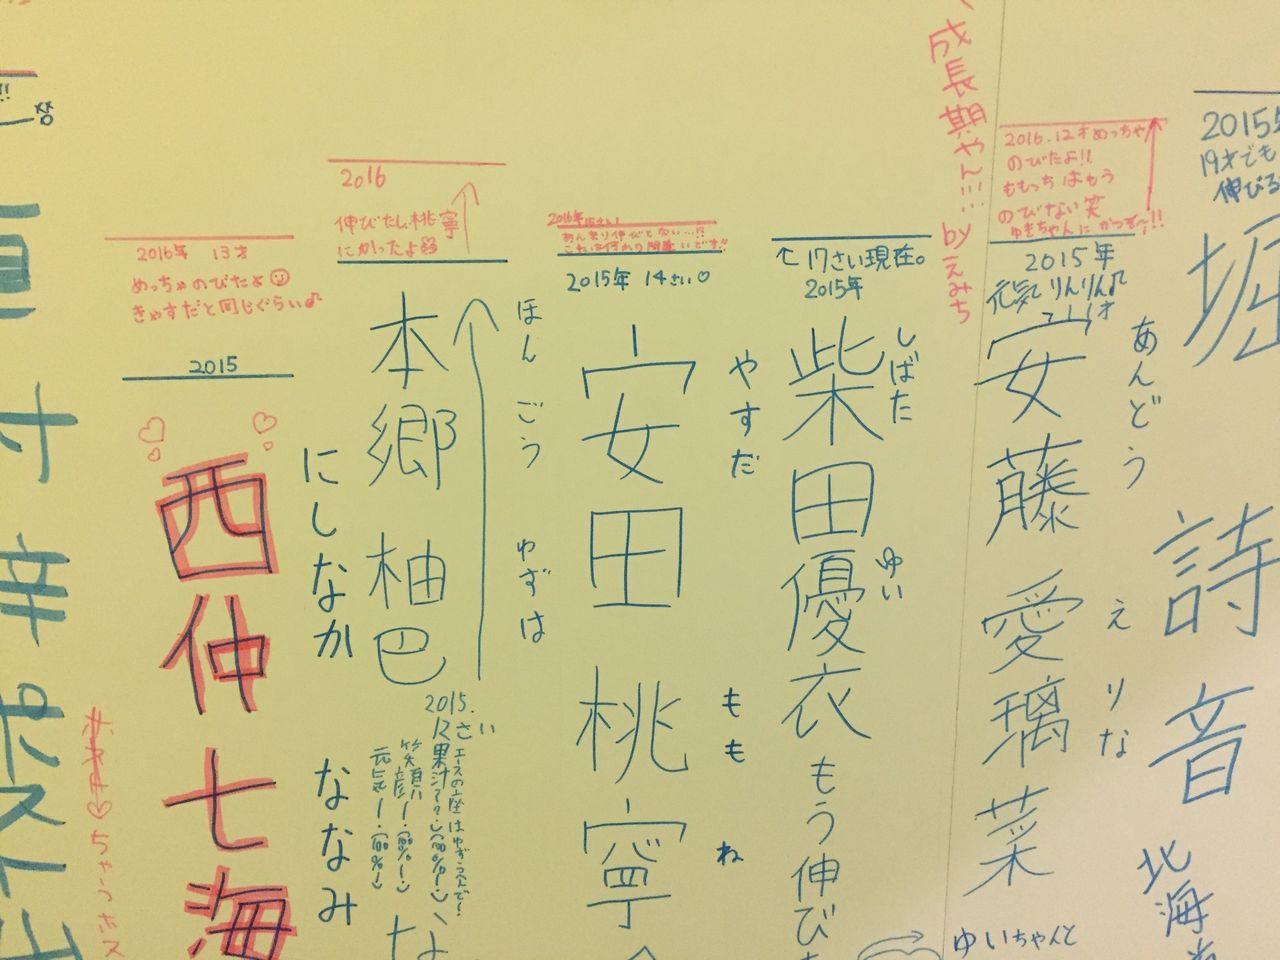 2016年 13才
めっちゃのびたよ
きゃすだと同じぐらい♪
2015
西仲七海
にしなか ななみ
2016
伸びたし、桃寧
にかったよ
本郷柚巴
ほんごう ゆずは
2015.
12さい
エースの座はゆずらんで!
果汁??(100%〜)
笑顔!!ー(100%〜)
元気ー(100%〜)
2016年15さい
あんまり伸びとない…!?
これは何かの間違いです!!
2015年 14さい♡
安田桃寧
やすだ ももね
↑17さい現在。
2015年
柴田優衣
しばた ゆい
もう伸び
成長期やん…!! byえみち
2016.12才めっちゃ
のびたよ!!
ももっちはもう
のびない笑
ゆきちゃんにかつぞ〜!!
2015年
元気りんりん♪
11才
安藤愛璃菜
あんどう えりな
ゆいちゃんと
2015
19才でも
伸びる
堀詩音
北海